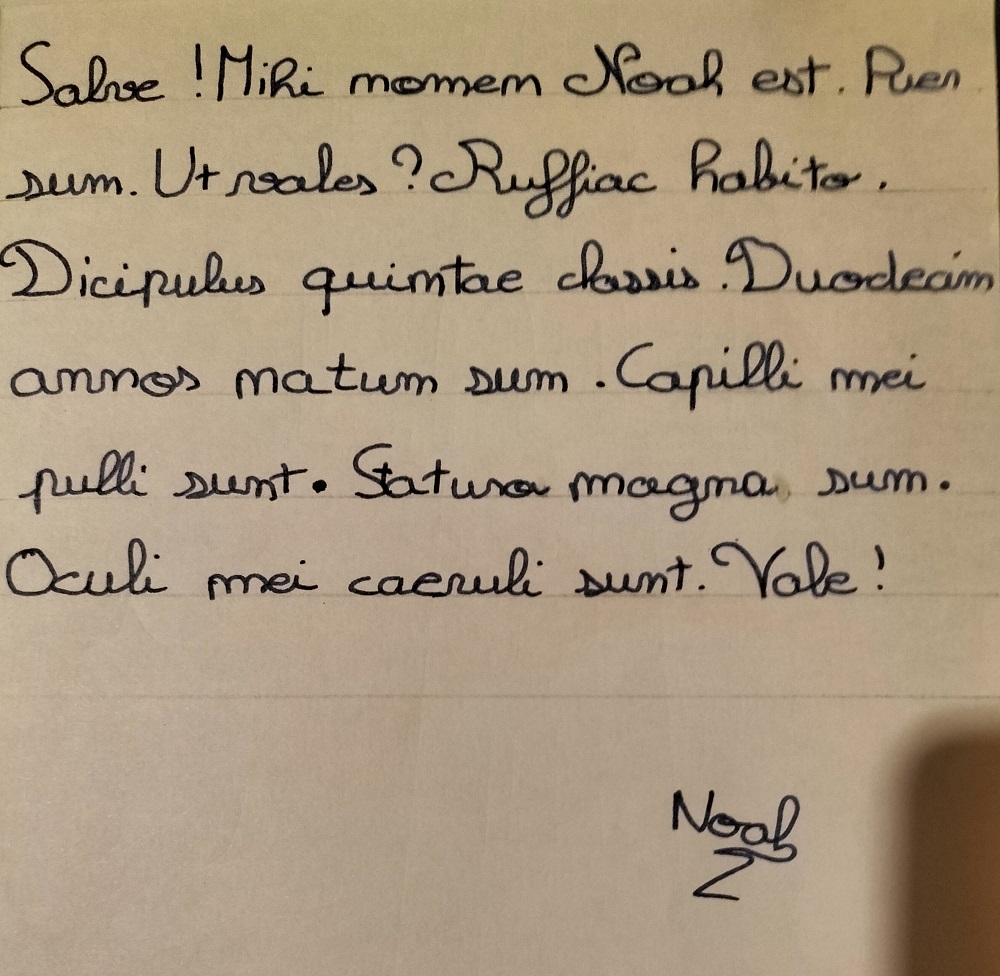 Salve ! Mihi nomen Noah est. Puer
sum. Ut vales ? Ruffiac habito.
Dicipulus quintae classis. Duodecim
annos natum sum. Capilli mei
pulli sunt. Statura magna sum.
Oculi mei caeruli sunt. Vale !
Noah